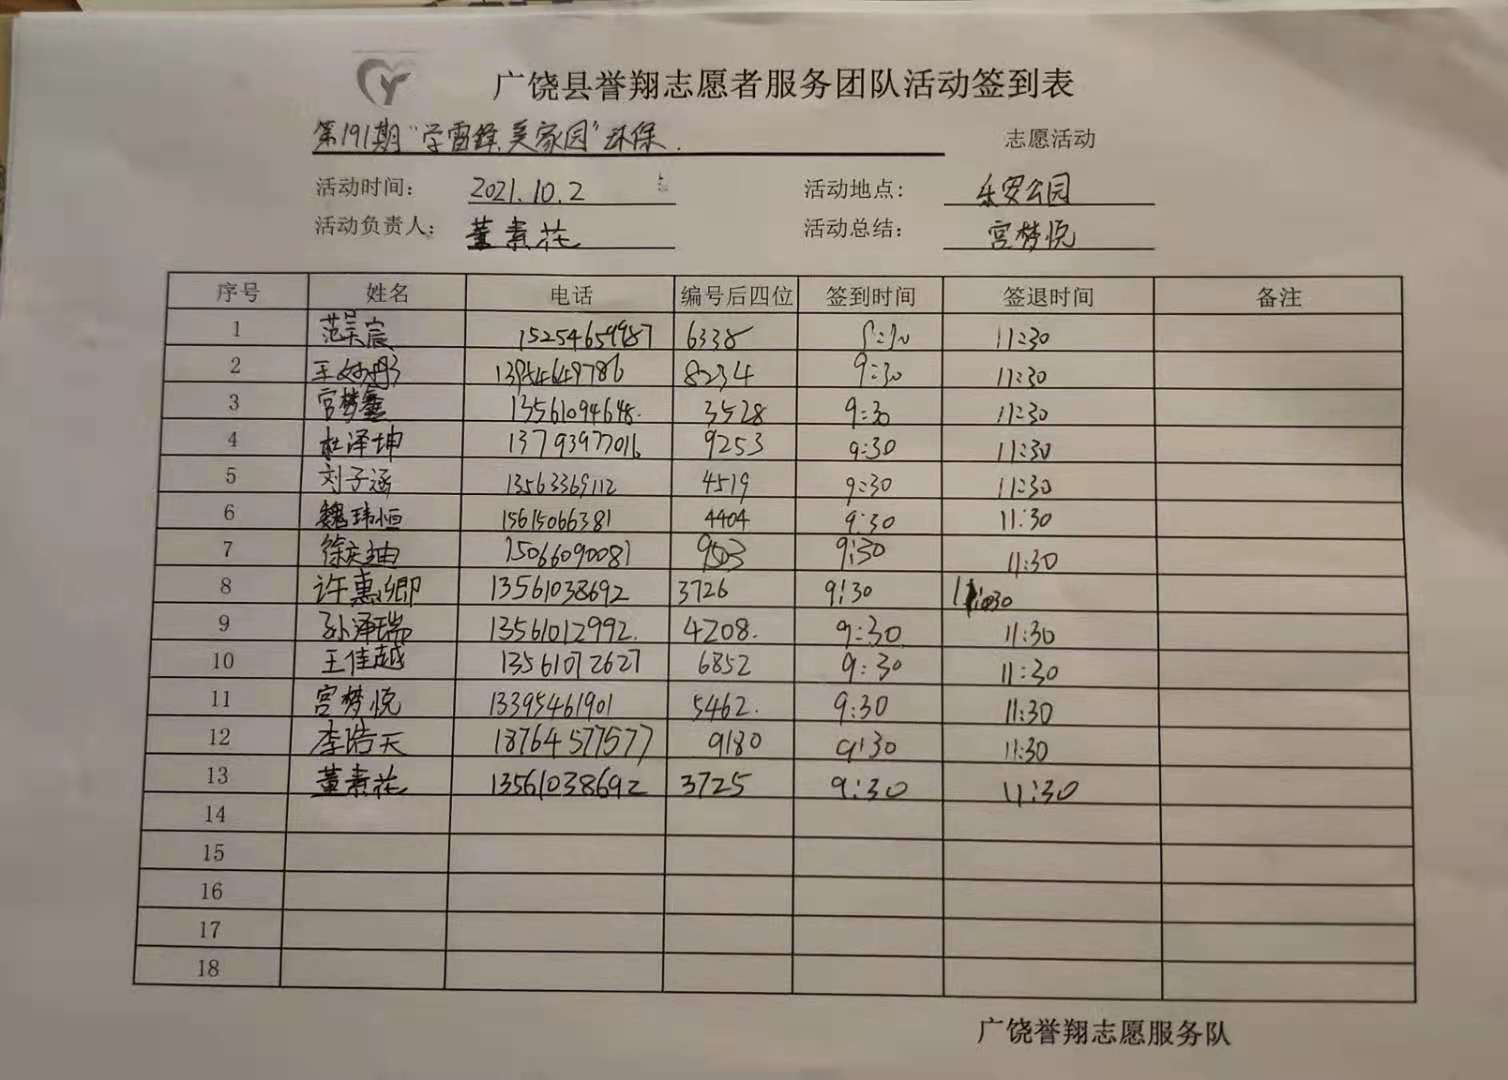 广饶县誉翔志愿者服务团队活动签到表
第191期“学雷锋,美家园”环保. 志愿活动
活动时间: 2021.10.2 活动地点: 乐安公园
活动负责人: 董素花 活动总结: 宫梦悦
序号 姓名 电话 编号后四位 签到时间 签退时间 备注
1 范昊宸 15254659987 6338 11:30
2 王妙彤 13954649786 8234 9:30 11:30
3 宫梦鑫 13561094648. 3528 9:30 11:30
4 杜泽坤 13793977016 9253 9:30 11:30
5 刘子涵 13563369112 4519 9:30 11:30
6 魏玮恒 15615066381 4404 9:30 11:30
7 徐奕迪 15066090081 9503 9:30 11:30
8 许惠卿 13561038692 3726 9:30 11:30
9 孙泽瑞 13561012992. 4208. 9:30 11:30
10 王佳越 13561072627 6852 9:30 11:30
11 宫梦悦 13395461901 5462. 9:30 11:30
12 李浩天 18764577577 9180 9:30 11:30
13 董素花 13561038692 3725 9:30 11:30
14
15
16
17
18
广饶誉翔志愿服务队